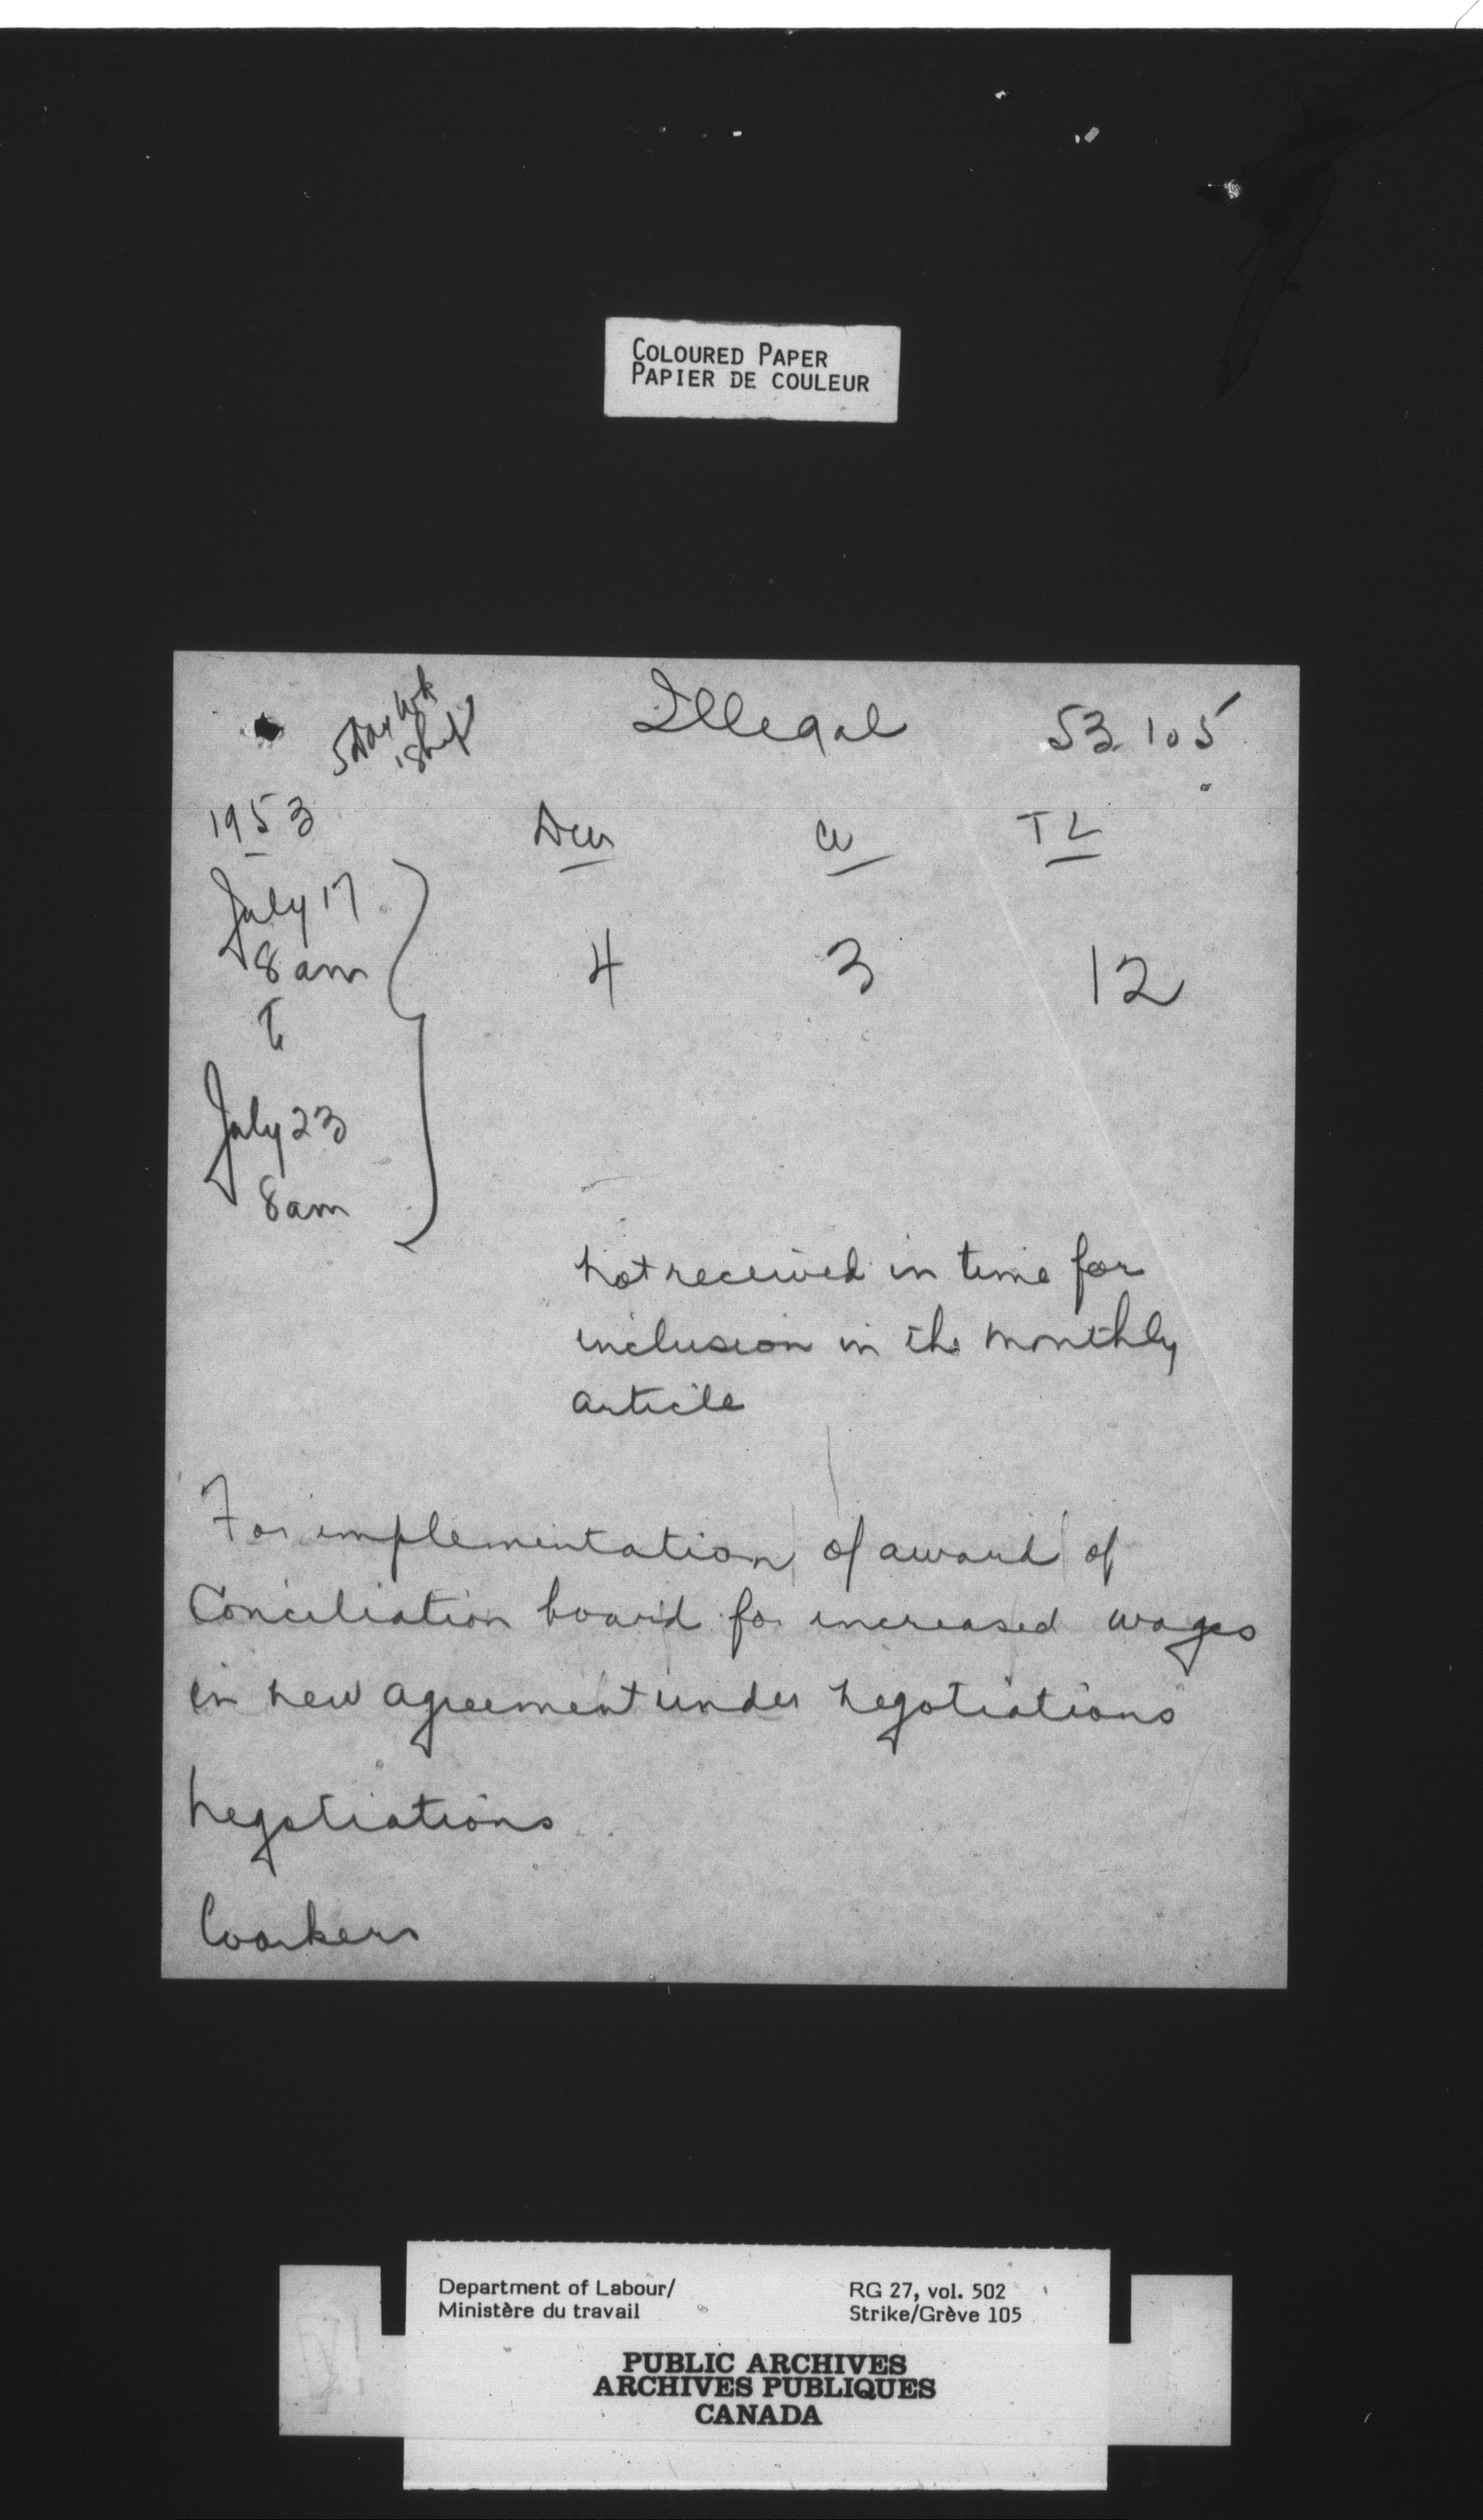 COLOURED PAPER
PAPIER DE COULEUR
5 Day wk
Illegal
53.105
1953
DW
W
TL
July 17
8 am
4
3
12
To
July 23
8 am
not received in time for
inclusion in the monthly
article
For implementation of award of
Conciliation board for increased wages
in new agreement under negotiations
negotiations
Workers
Department of Labour/
Ministère du travail
RG 27, vol. 502
Strike/Grève 105
PUBLIC ARCHIVES
ARCHIVES PUBLIQUES
CANADA